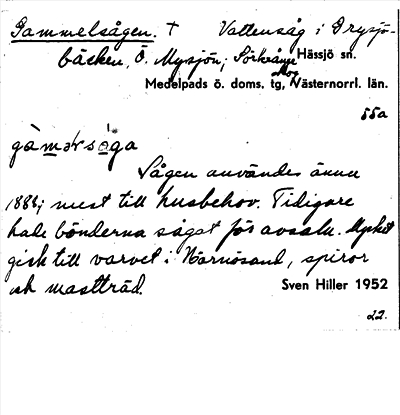 Gammelsågen. † Vattensåg i Mysjö-
bäcken, Ö. Mysjön, Hässjö sn.
Medelpads ö. doms. tg, Västernorrl. län.
55a
Sågen användes ännu
1888, mest till husbehov. Tidigare
hade bönderna sågat för avsalu. Mycket
gick till varvet i Härnösand, spiror
och mastträd. Sven Hiller 1952
22.